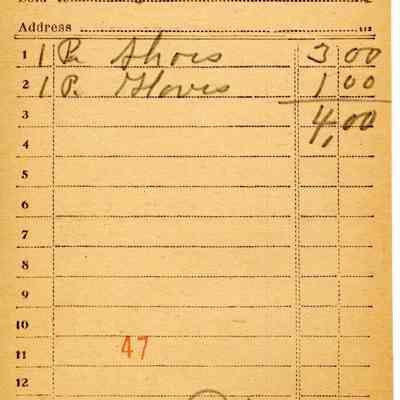 Address
1 1 Pr. Shoes 3 00
2 1 P. Gloves 1 00
3 4,00
4
5
6
7
8
9
10
11 47
12